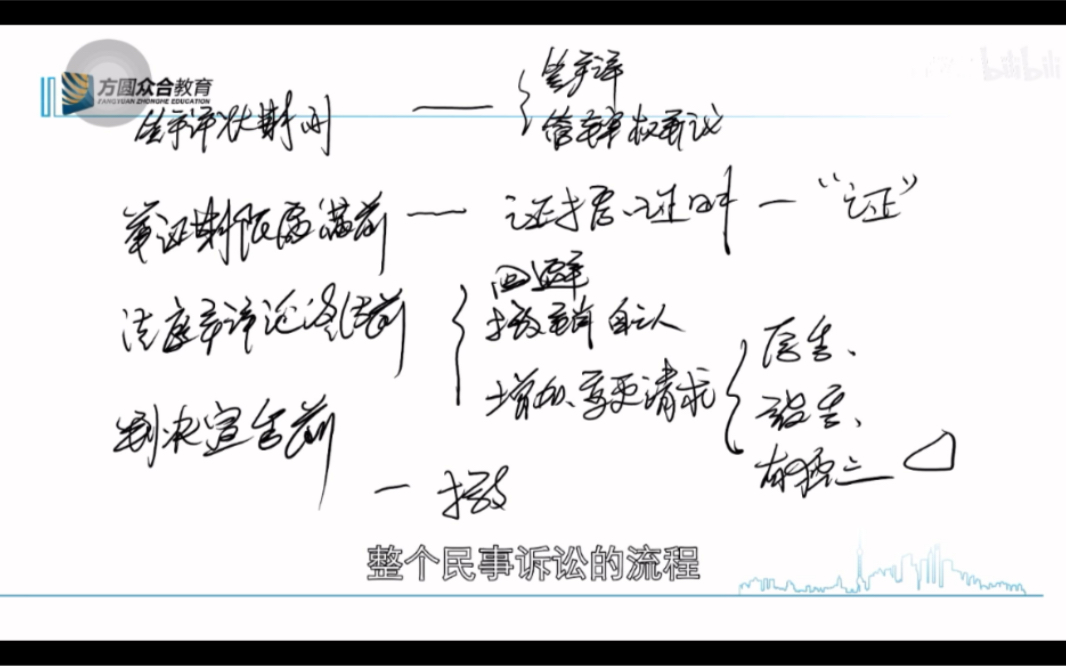 方圆众合教育
FANGYUAN ZHONGHE EDUCATION
bilibili
答辩状期间 — { 答辩
管辖权异议
举证期限届满前 — 证据、证明 — “证”
法庭辩论终结前 { 回避
撤销自认
增加、变更请求 { 原告、
被告、
有独三
判决宣告前 — 撤诉
整个民事诉讼的流程